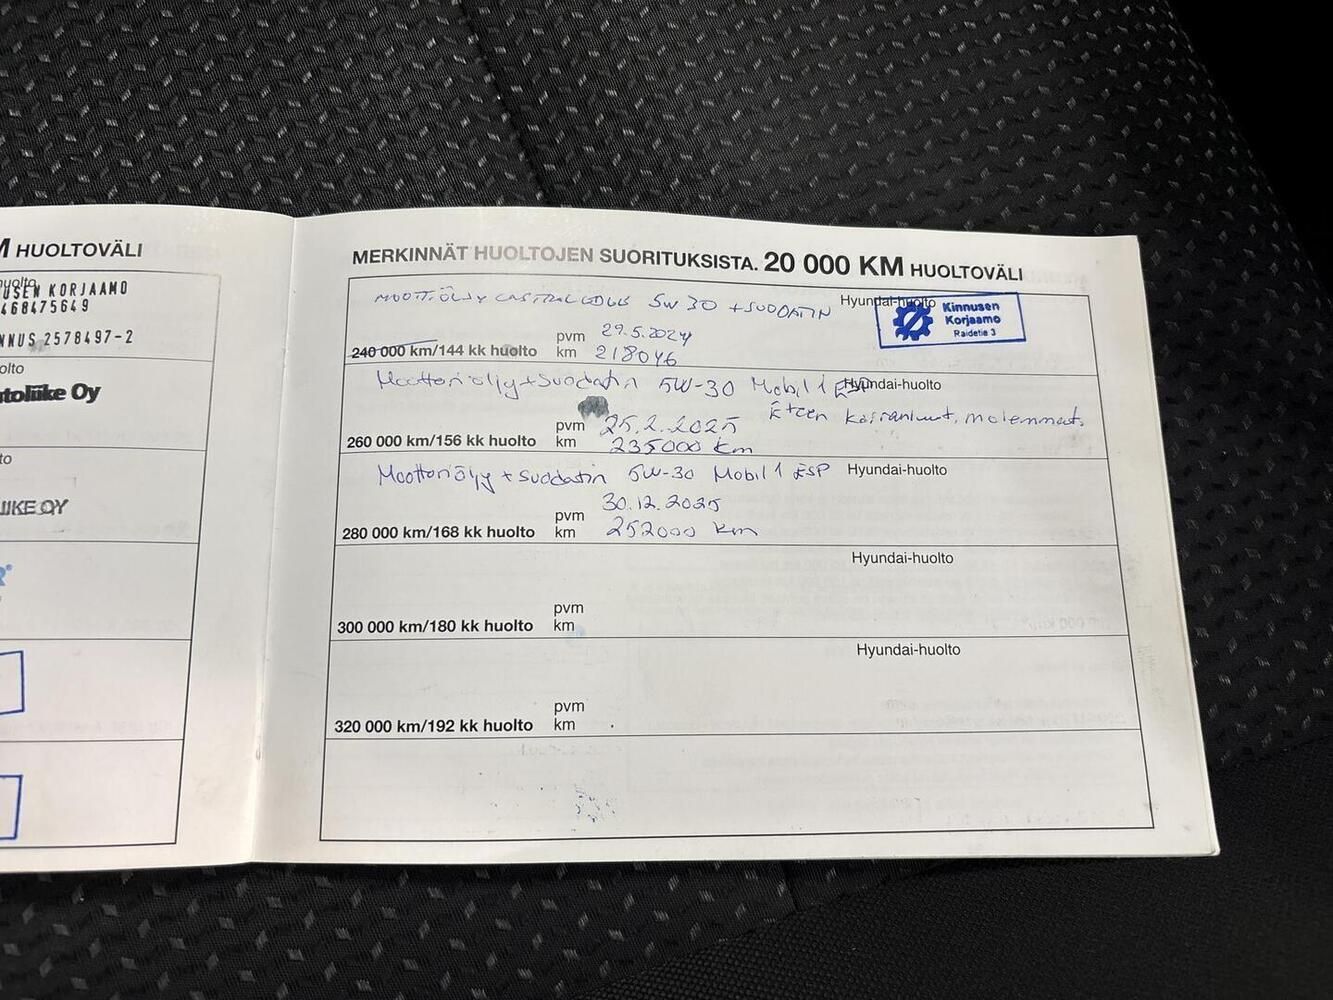 M HUOLTOVÄLI
huolto
USEN KORJAAMO
468475649
NNUS 2578497-2
olto
toliike Oy
to
IIKE OY
R®
MERKINNÄT HUOLTOJEN SUORITUKSISTA. 20 000 KM HUOLTOVÄLI
5W 30 + SUODATIN
Hyundai-huolto
Kinnusen
Korjaamo
Raidetie 3
pvm 29.5.2024
240 000 km/144 kk huolto km 218046
Moottoriöljy + Suodatin 5W-30 Mobil 1 ESP
Hyundai-huolto
Eteen molemmat.
pvm 25.2.2025
260 000 km/156 kk huolto km 235000 km
Moottoriöljy + Suodatin 5W-30 Mobil 1 ESP
Hyundai-huolto
pvm 30.12.2025
280 000 km/168 kk huolto km 252000 km
Hyundai-huolto
pvm
300 000 km/180 kk huolto km
Hyundai-huolto
pvm
320 000 km/192 kk huolto km